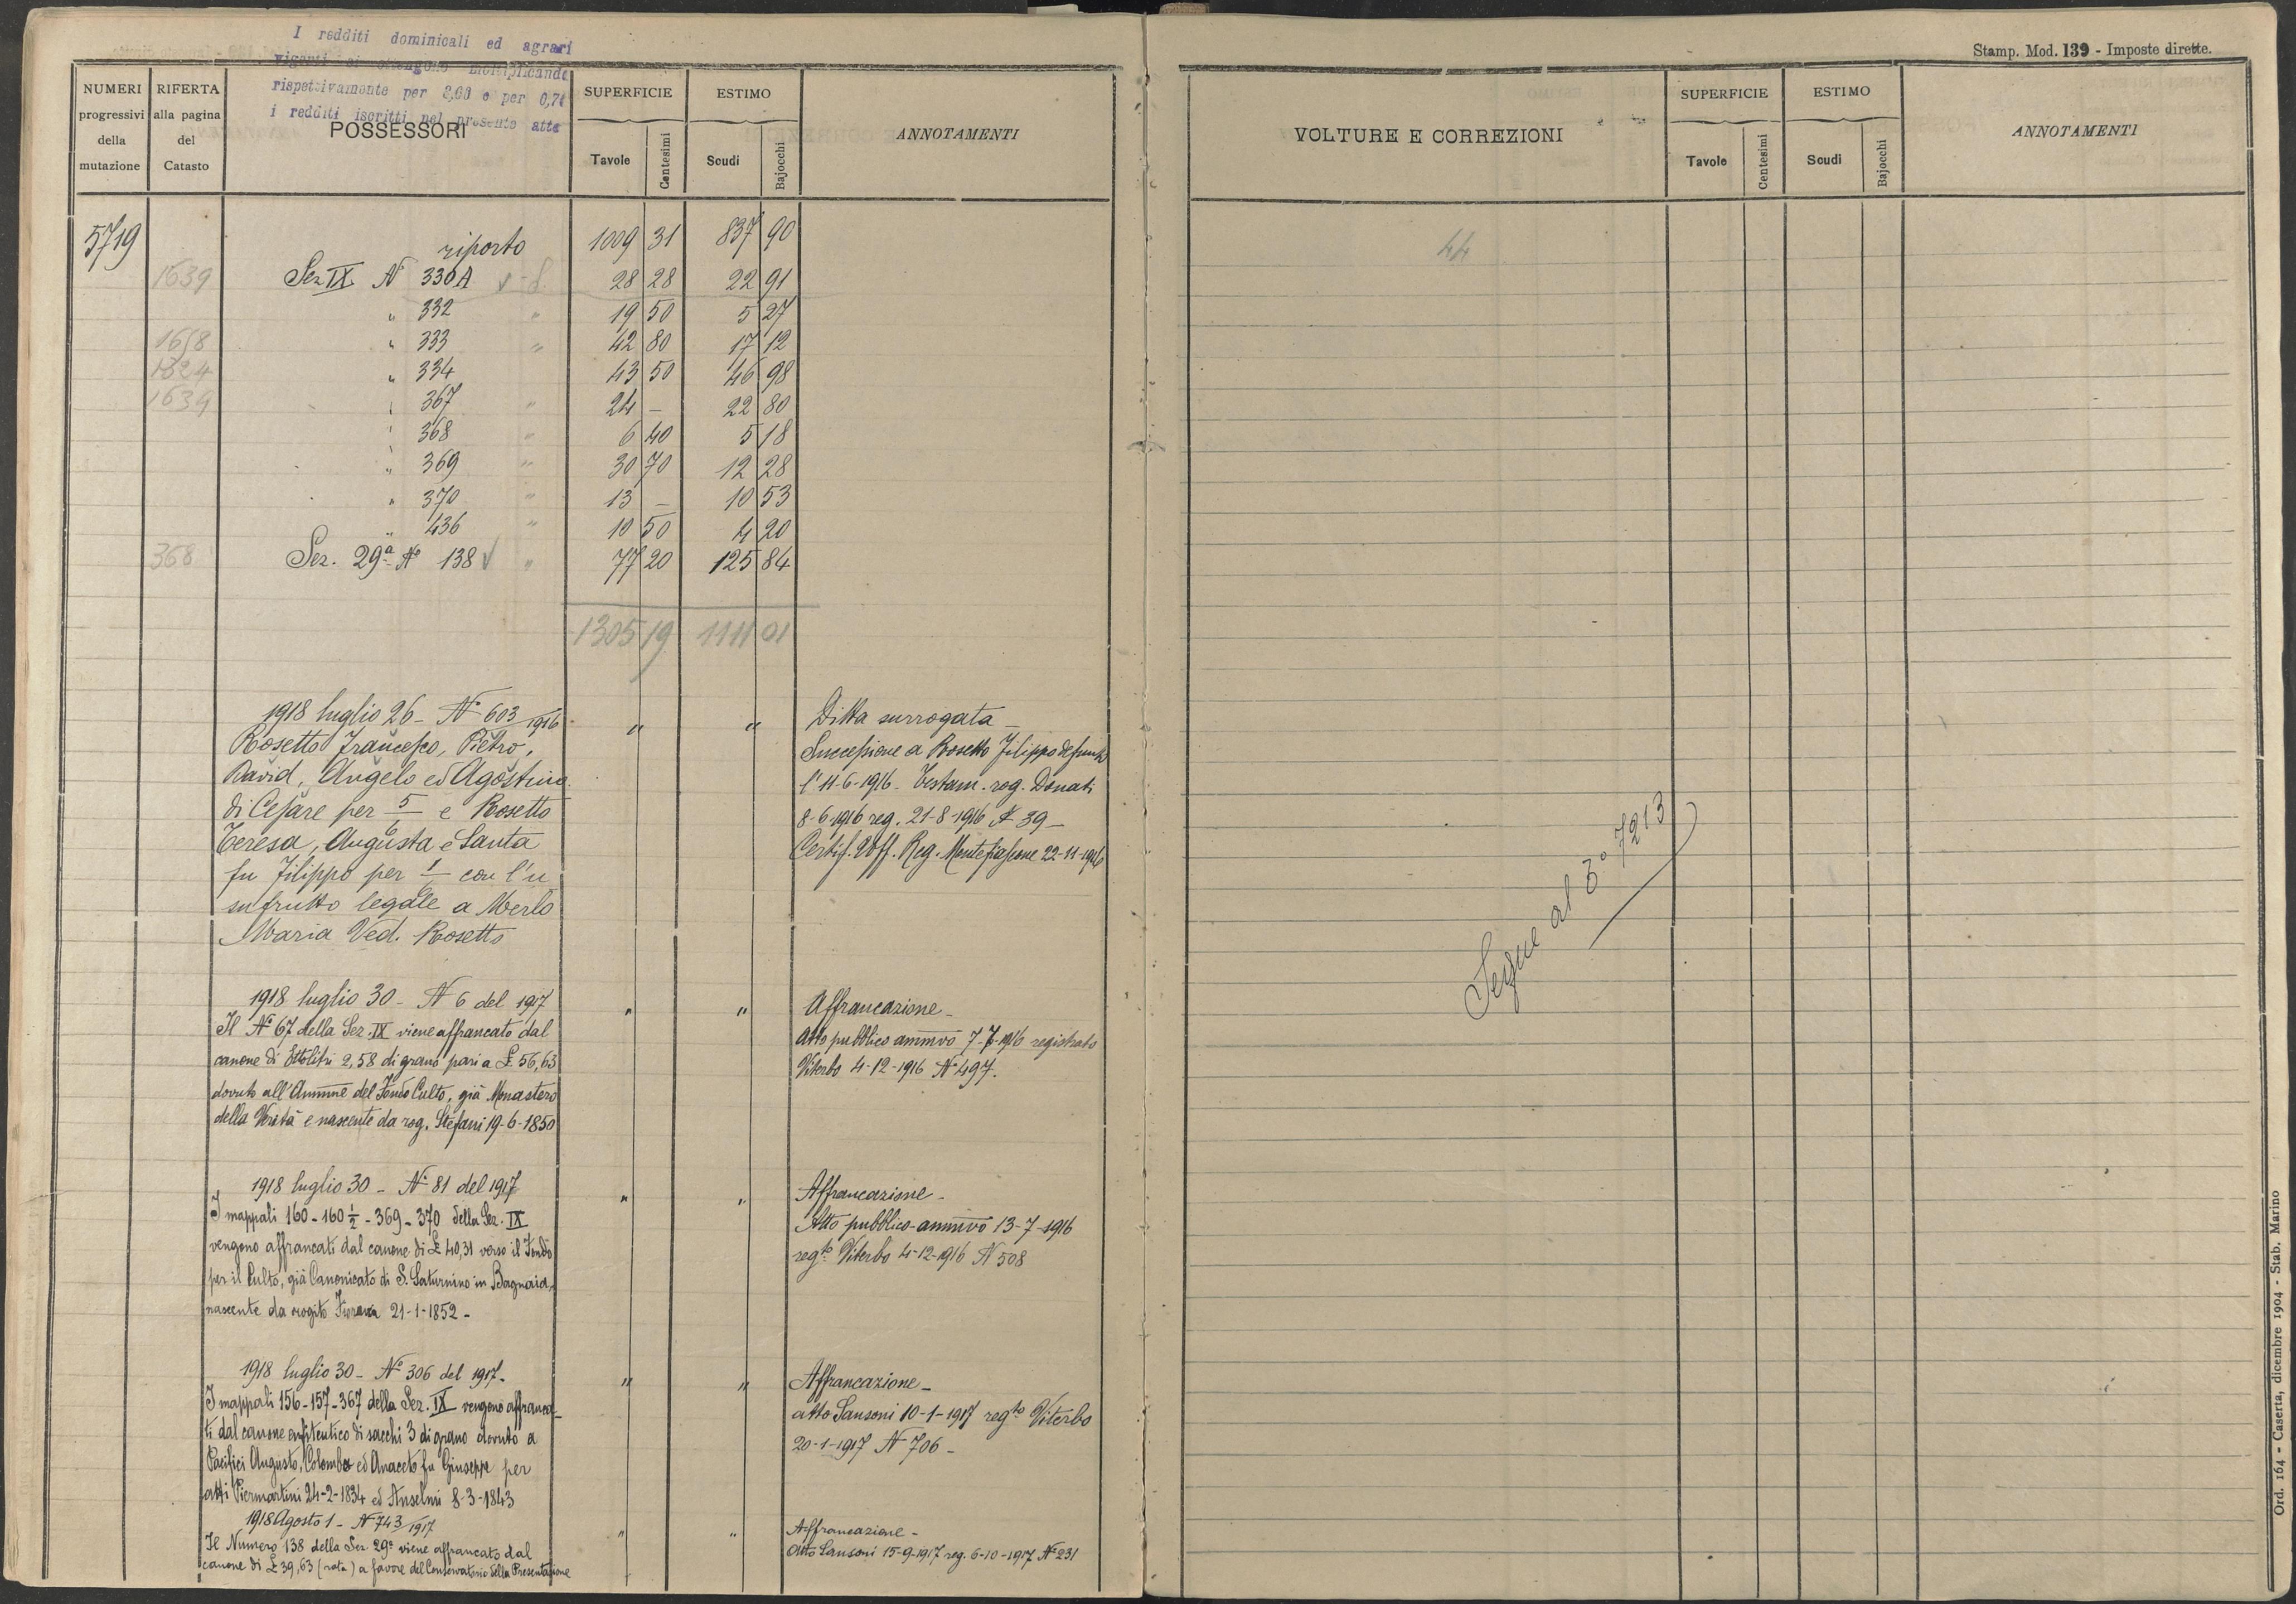 I redditi dominicali ed agrari
vigenti si ottengono moltiplicando
rispettivamente per 3,60 e per 0,7
i redditi iscritti nel presente atto
Stamp. Mod. 139 - Imposte dirette.
NUMERI progressivi della mutazione
RIFERTA alla pagina del Catasto
POSSESSORI
SUPERFICIE
Tavole
Centesimi
ESTIMO
Scudi
Bajocchi
ANNOTAMENTI
VOLTURE E CORREZIONI
SUPERFICIE
Tavole
Centesimi
ESTIMO
Scudi
Bajocchi
ANNOTAMENTI
5719 riporto 1009 31 837 90
1639 Sez IX N 330A 28 28 22 91
" 332 " 19 50 5 27
1658 " 333 " 42 80 17 12
1324 " 334 43 50 46 98
1639 " 367 " 24 - 22 80
" 368 " 6 40 5 18
" 369 " 30 70 12 28
" 370 " 13 - 10 53
" 436 " 10 50 4 20
368 Sez. 29ª Nº 138 √ " 77 20 125 84
1305 19 1111 01
1918 luglio 26 - Nº 603/1916 " "
Rosetto Francesco, Pietro,
David, Angelo ed Agostino
di Cesare per 5/6 e Rosetto
Teresa, Augusta e Santa
fu Filippo per 1/6 con l'u
sufrutto legale a Merlo
Maria Ved. Rosetto
Ditta surrogata -
Successione a Rosetto Filippo defunto
l'11-6-1916. Testam. rog. Donati
8-6-1916 reg. 21-8-1916 Nº 39 -
Certif. Uff. Reg. Montefiascone 22-11-1916
1918 luglio 30 - Nº 6 del 1917 " "
Il Nº 67 della Sez. IX viene affrancato dal
canone di Ettolitri 2,58 di grano pari a £ 56,63
dovuto all'Ammne del Fondo Culto, già Monastero
della Verità e nascente da rog. Stefani 19-6-1850
Affrancazione -
Atto pubblico ammvo 7-7-1916 registrato
Viterbo 4-12-1916 Nº 497.
1918 luglio 30 - Nº 81 del 1917 " "
I mappali 160 - 160 ½ - 369 - 370 della Sez. IX
vengono affrancati dal canone di £ 40,31 verso il Fondo
per il Culto, già Canonicato di S. Saturnino in Bagnaia,
nascente da rogito 21-1-1852 -
Affrancazione -
Atto pubblico ammvo 13-7-1916
regto Viterbo 4-12-1916 N 508
1918 luglio 30 - Nº 306 del 1917 - " "
I mappali 156 - 157 - 367 della Sez. IX vengono affranca-
ti dal canone enfiteutico di sacchi 3 di grano dovuto a
Pacifici Augusto, Colombo ed Anaceto fu Giuseppe per
atti Piermartini 24-2-1834 ed Anselmi 8-3-1843
Affrancazione -
atto Sansoni 10-1-1917 regto Viterbo
20-1-1917 Nº 706 -
1918 Agosto 1 - Nº 743/1917 " "
Il Numero 138 della Sez. 29ª viene affrancato dal
canone di £ 39,63 (rata) a favore del Conservatorio della Presentazione
Affrancazione -
Atto Sansoni 15-9-1917 reg. 6-10-1917 Nº 231
44
Segue al 3º 7213
Ord. 164 - Caserta, dicembre 1904 - Stab. Marino